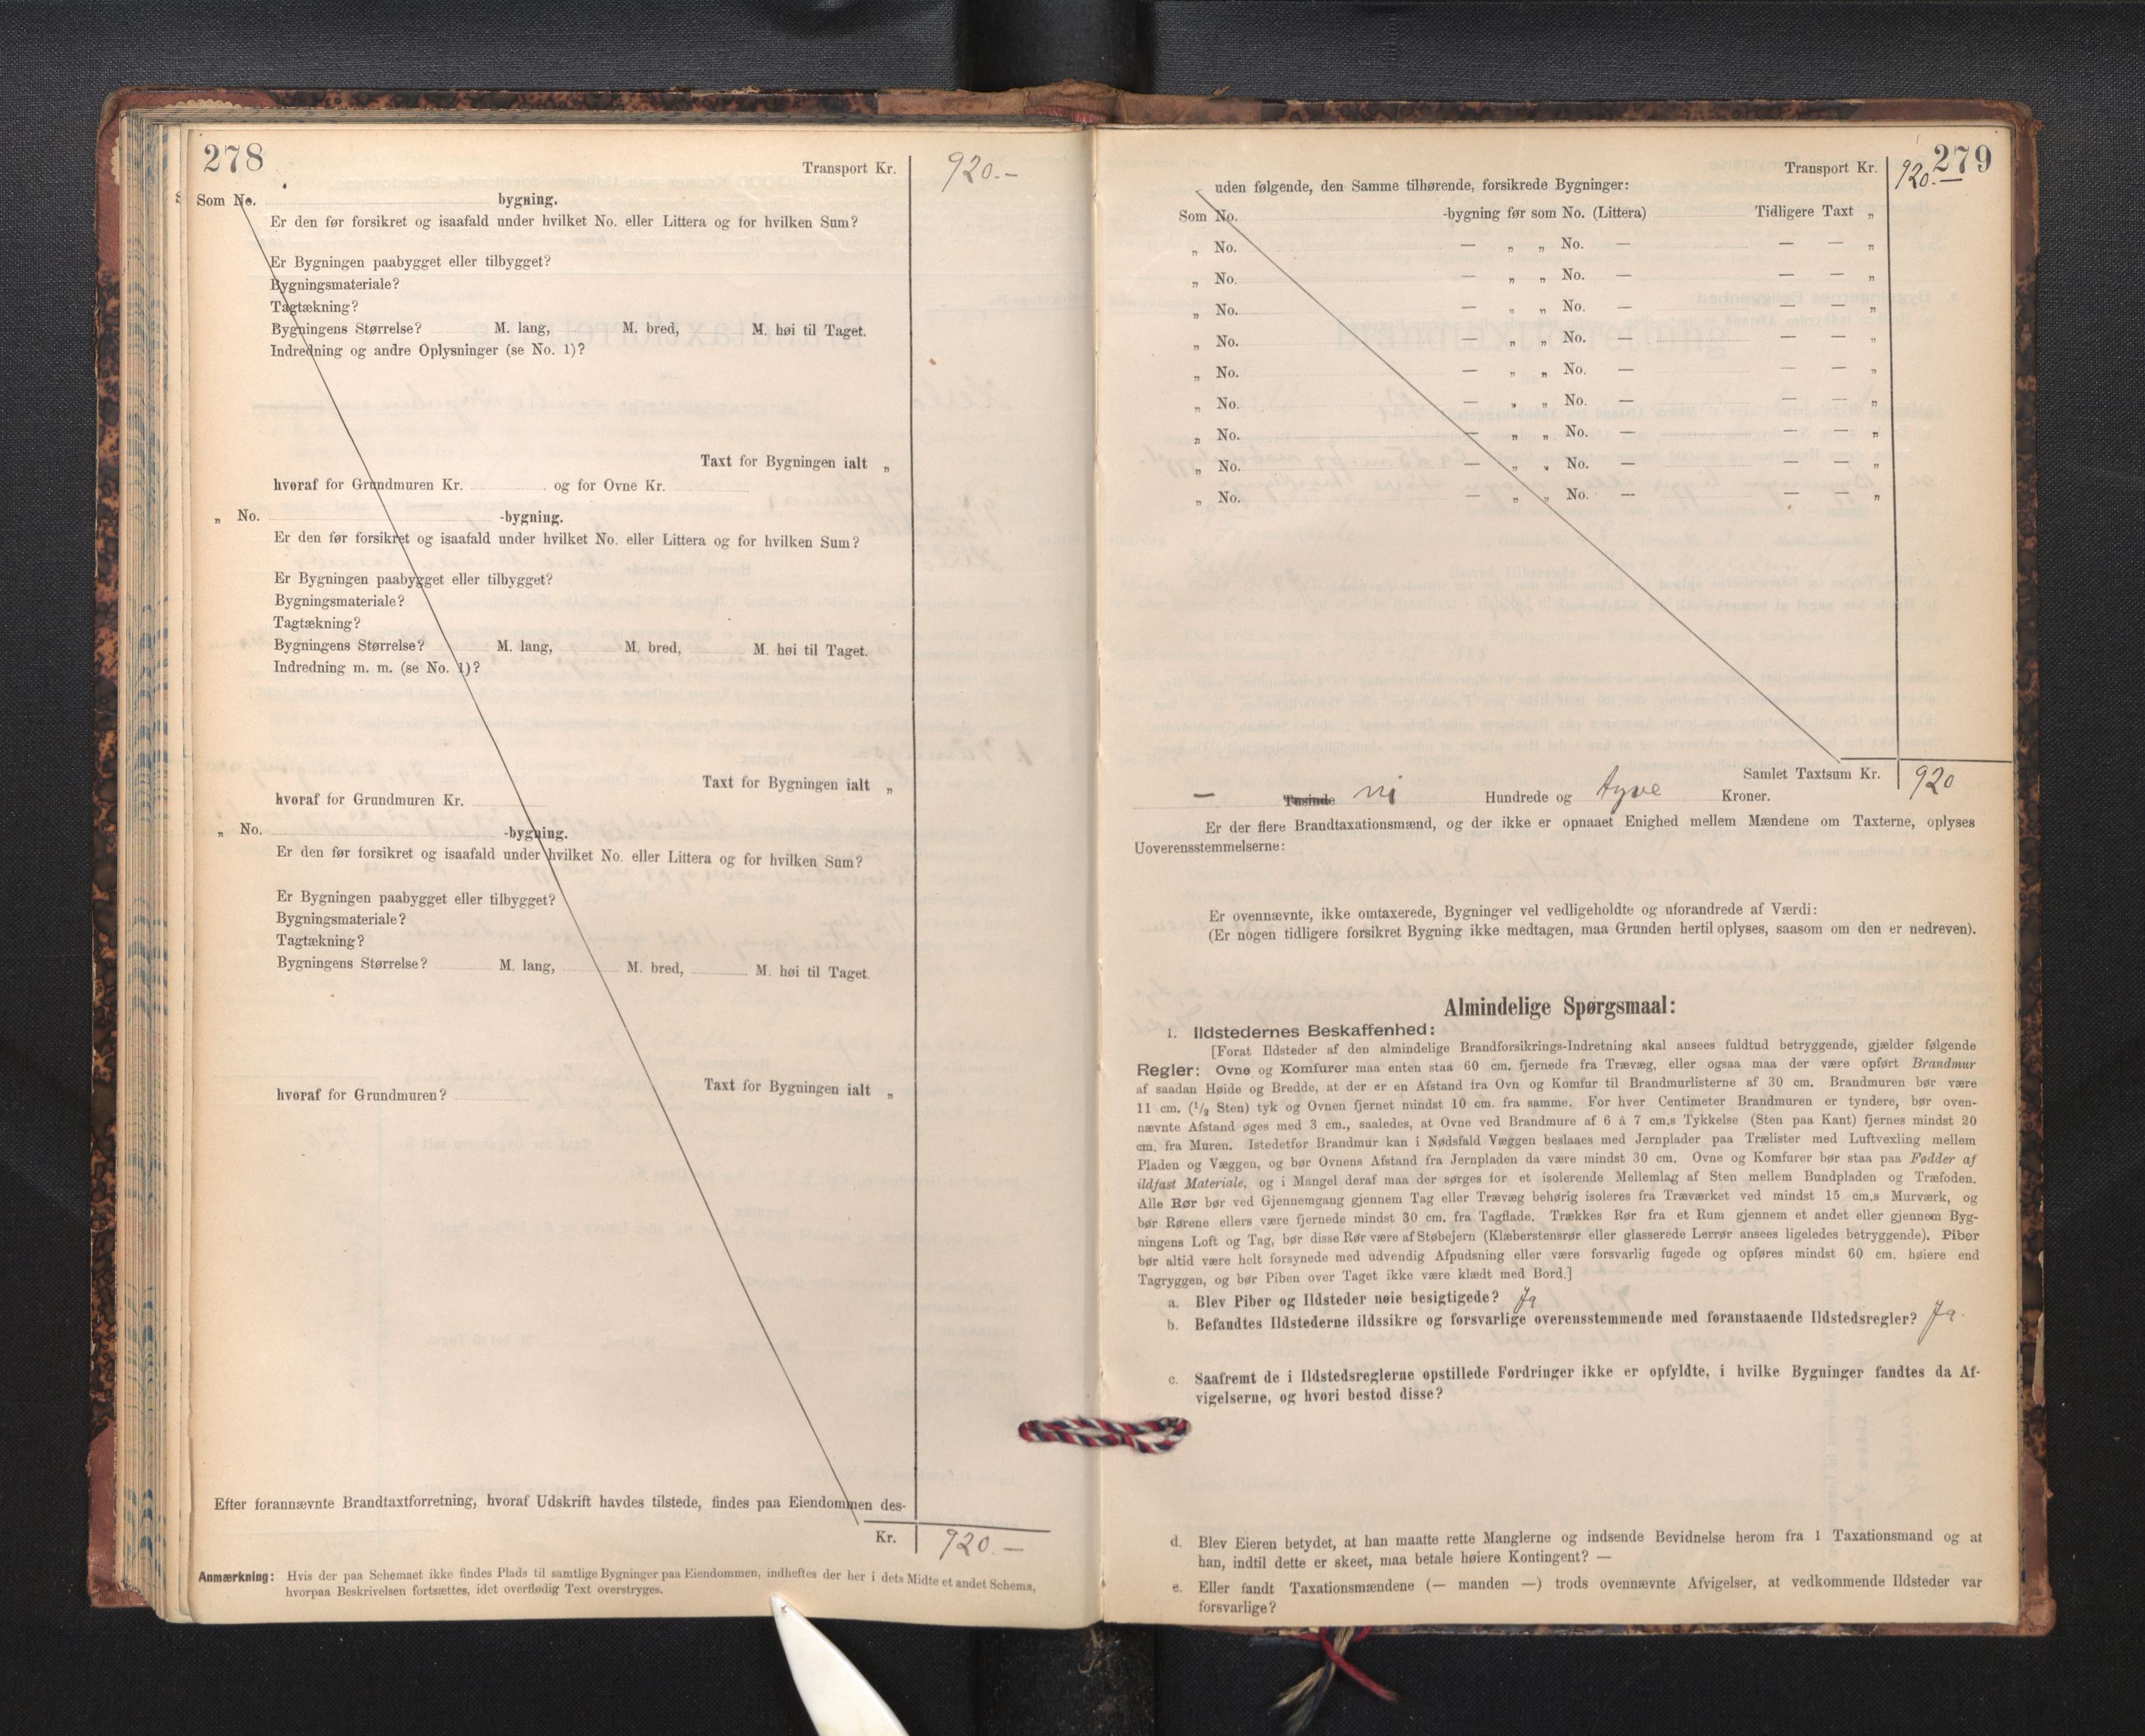 278
Transport Kr. 920.-
Som No. bygning.
Er den før forsikret og isaafald under hvilket No. eller Littera og for hvilken Sum?
Er Bygningen paabygget eller tilbygget?
Bygningsmateriale?
Tagtækning?
Bygningens Størrelse? M. lang, M. bred, M. høi til Taget.
Indredning og andre Oplysninger (se No. 1)?
Taxt for Bygningen ialt „
hvoraf for Grundmuren Kr. og for Ovne Kr.
„ No. -bygning.
Er den før forsikret og isaafald under hvilket No. eller Littera og for hvilken Sum?
Er Bygningen paabygget eller tilbygget?
Bygningsmateriale?
Tagtækning?
Bygningens Størrelse? M. lang, M. bred, M. høi til Taget.
Indredning m. m. (se No. 1)?
Taxt for Bygningen ialt „
hvoraf for Grundmuren Kr.
„ No. -bygning.
Er den før forsikret og isaafald under hvilket No. eller Littera og for hvilken Sum?
Er Bygningen paabygget eller tilbygget?
Bygningsmateriale?
Tagtækning?
Bygningens Størrelse? M. lang, M. bred, M. høi til Taget.
Taxt for Bygningen ialt „
hvoraf for Grundmuren?
Efter forannævnte Brandtaxtforretning, hvoraf Udskrift havdes tilstede, findes paa Eiendommen des-
Kr. 920.—
Anmærkning: Hvis der paa Schemaet ikke findes Plads til samtlige Bygninger paa Eiendommen, indheftes der her i dets Midte et andet Schema,
hvorpaa Beskrivelsen fortsættes, idet overflødig Text overstryges.
279
Transport Kr. 920.—
uden følgende, den Samme tilhørende, forsikrede Bygninger:
Som No. -bygning før som No. (Littera) Tidligere Taxt „
„ No. — „ „ No. — — — „
„ No. — „ „ No. — — — „
„ No. — „ „ No. — — — „
„ No. — „ „ No. — — — „
„ No. — „ „ No. — — — „
„ No. — „ „ No. — — — „
„ No. — „ „ No. — — — „
„ No. — „ „ No. — — — „
„ No. — „ „ No. — — — „
Samlet Taxtsum Kr. 920
— Tusinde ni Hundrede og tyve Kroner.
Er der flere Brandtaxationsmænd, og der ikke er opnaaet Enighed mellem Mændene om Taxterne, oplyses
Uoverensstemmelserne:
Er ovennævnte, ikke omtaxerede, Bygninger vel vedligeholdte og uforandrede af Værdi:
(Er nogen tidligere forsikret Bygning ikke medtagen, maa Grunden hertil oplyses, saasom om den er nedreven).
Almindelige Spørgsmaal:
1. Ildstedernes Beskaffenhed:
[Forat Ildsteder af den almindelige Brandforsikrings-Indretning skal ansees fuldtud betryggende, gjælder følgende
Regler: Ovne og Komfurer maa enten staa 60 cm. fjernede fra Trævæg, eller ogsaa maa der være opført Brandmur
af saadan Høide og Bredde, at der er en Afstand fra Ovn og Komfur til Brandmurlisterne af 30 cm. Brandmuren bør være
11 cm. (1/2 Sten) tyk og Ovnen fjernet mindst 10 cm. fra samme. For hver Centimeter Brandmuren er tyndere, bør oven-
nævnte Afstand øges med 3 cm., saaledes, at Ovne ved Brandmure af 6 à 7 cm.s Tykkelse (Sten paa Kant) fjernes mindst 20
cm. fra Muren. Istedetfor Brandmur kan i Nødsfald Væggen beslaaes med Jernplader paa Trælister med Luftvexling mellem
Pladen og Væggen, og bør Ovnens Afstand fra Jernpladen da være mindst 30 cm. Ovne og Komfurer bør staa paa Fødder af
ildfast Materiale, og i Mangel deraf maa der sørges for et isolerende Mellemlag af Sten mellem Bundpladen og Træfoden.
Alle Rør bør ved Gjennemgang gjennem Tag eller Trævæg behørig isoleres fra Træværket ved mindst 15 cm.s Murværk, og
bør Rørene ellers være fjernede mindst 30 cm. fra Tagflade. Trækkes Rør fra et Rum gjennem et andet eller gjennem Byg-
ningens Loft og Tag, bør disse Rør være af Støbejern (Klæberstensrør eller glasserede Lerrør ansees ligeledes betryggende). Piber
bør altid være helt forsynede med udvendig Afpudsning eller være forsvarlig fugede og opføres mindst 60 cm. høiere end
Tagryggen, og bør Piben over Taget ikke være klædt med Bord.]
a. Blev Piber og Ildsteder nøie besigtigede? Ja
b. Befandtes Ildstederne ildssikre og forsvarlige overensstemmende med foranstaaende Ildstedsregler? Ja.
c. Saafremt de i Ildstedsreglerne opstillede Fordringer ikke er opfyldte, i hvilke Bygninger fandtes da Af-
vigelserne, og hvori bestod disse?
d. Blev Eieren betydet, at han maatte rette Manglerne og indsende Bevidnelse herom fra 1 Taxationsmand og at
han, indtil dette er skeet, maa betale høiere Kontingent? —
e. Eller fandt Taxationsmændene (— manden —) trods ovennævnte Afvigelser, at vedkommende Ildsteder var
forsvarlige?